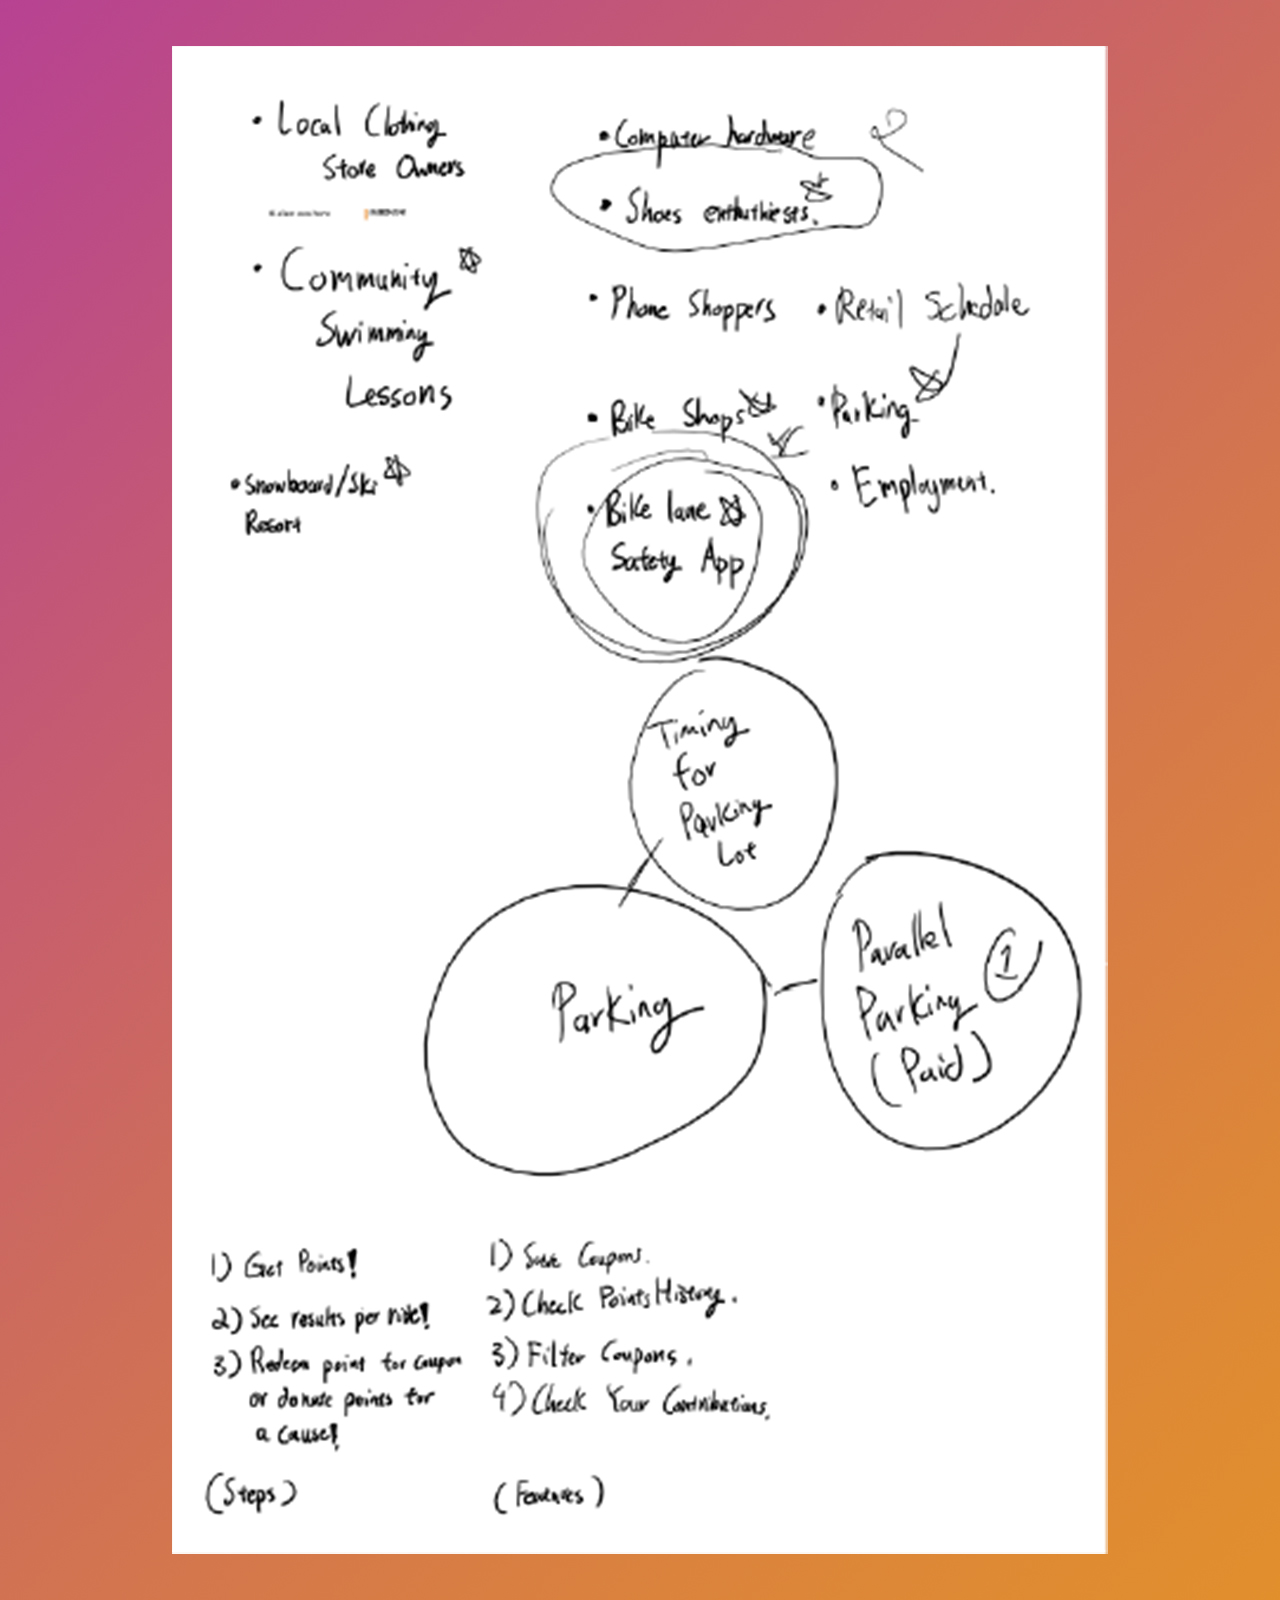 • Local Clothing
Store Owners
• Community
Swimming
Lessons
• Snowboard/Ski
Resort
• Computer hardware
• Shoes enthuthiests.
• Phone Shoppers
• Retail Schedale
• Bike Shops
• Parking
• Bike lane
Safety App
• Employment.
Timing
for
Parking
Lot
Parking
Parallel
Parking
(Paid)
1
1) Get Points!
2) See results per
3) Redeem point for coupon
or donate points for
a cause!
(Steps)
1) Save Coupons.
2) Check Points History.
3) Filter Coupons.
4) Check Your Contributions.
(Features)